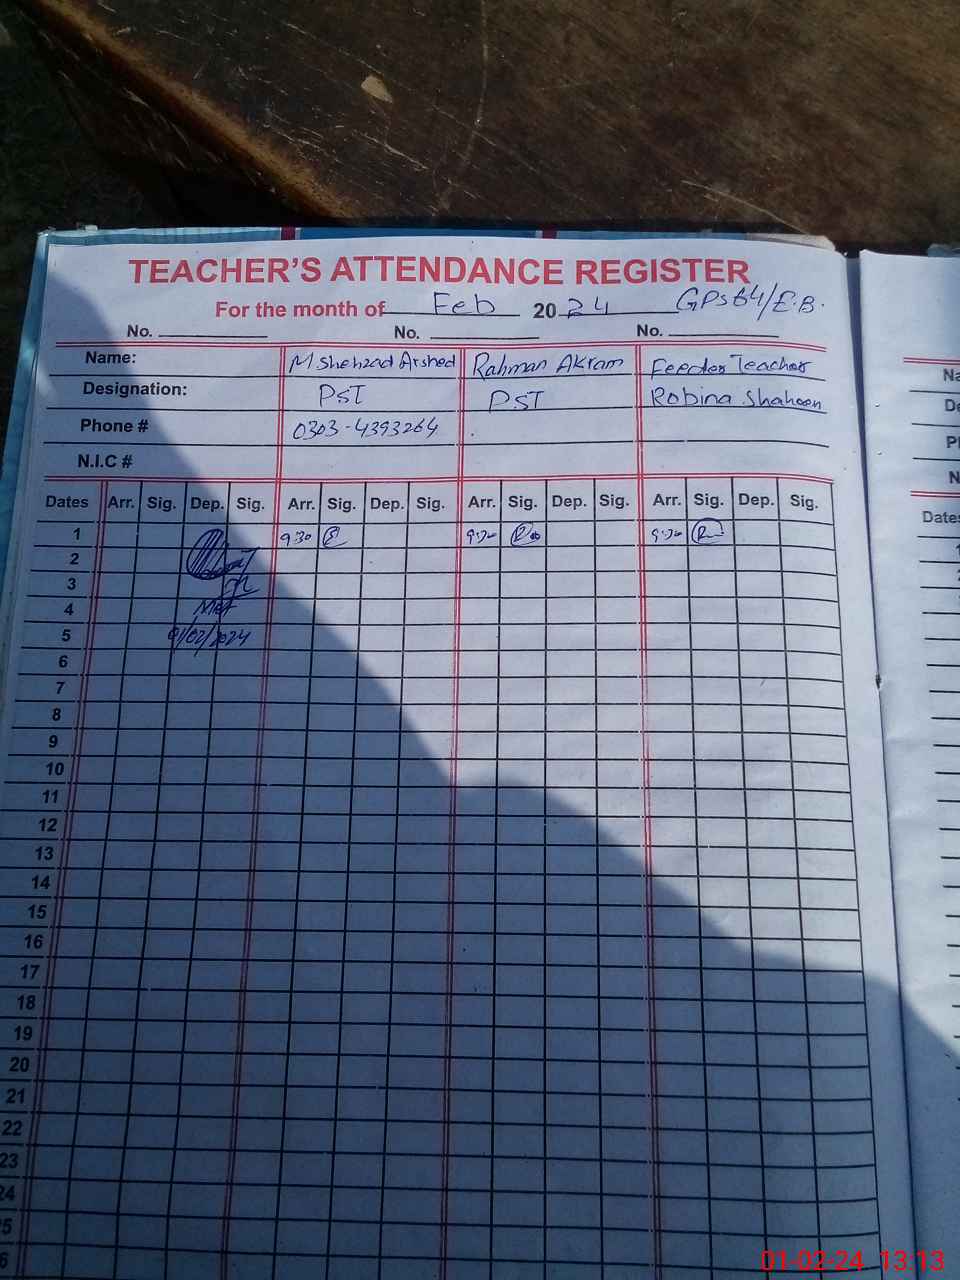 TEACHER'S ATTENDANCE REGISTER
For the month of Feb 2024 GPS 64/E.B.
No. No. No.
Name: M Shehzad Arshed Rahman Akram Feeder Teacher
Designation: PST PST Robina Shaheen
Phone # 0303-4393264
N.I.C #
Dates Arr. Sig. Dep. Sig. Arr. Sig. Dep. Sig. Arr. Sig. Dep. Sig. Arr. Sig. Dep. Sig.
1 9:30 9:30 9:30
2
3
4
5 01/02/2024
6
7
8
9
10
11
12
13
14
15
16
17
18
19
20
21
22
23
24
Dates
01-02-24 13:13